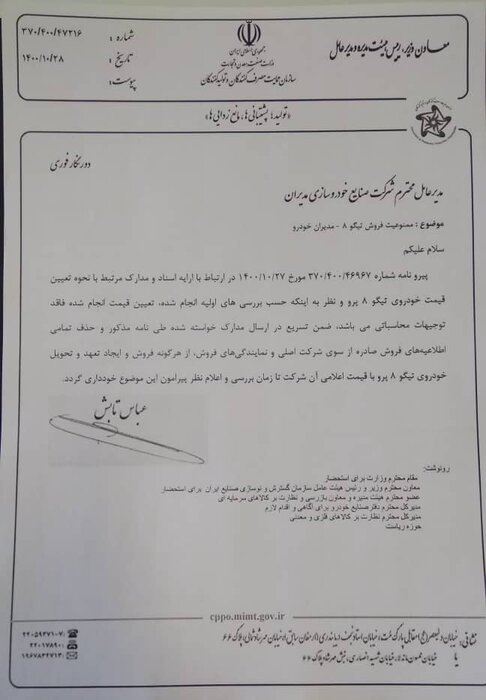 معاون وزیر، رییس هیئت مدیره و مدیرعامل
جمهوری اسلامی ایران
وزارت صنعت، معدن و تجارت
سازمان حمایت مصرف کنندگان و تولیدکنندگان
شماره : ۳۷۰/۴۰۰/۴۷۲۱۶
تاریخ : ۱۴۰۰/۱۰/۲۸
پیوست:
«تولید؛ پشتیبانی‌ها، مانع زدایی‌ها»
دورنگار فوری
مدیرعامل محترم شرکت صنایع خودروسازی مدیران
موضوع : ممنوعیت فروش تیگو ۸ - مدیران خودرو
سلام علیکم
پیرو نامه شماره ۳۷۰/۴۰۰/۴۶۹۶۷ مورخ ۱۴۰۰/۱۰/۲۷ در ارتباط با ارایه اسناد و مدارک مرتبط با نحوه تعیین
قیمت خودروی تیگو ۸ پرو و نظر به اینکه حسب بررسی های اولیه انجام شده، تعیین قیمت انجام شده فاقد
توجیهات محاسباتی می باشد، ضمن تسریع در ارسال مدارک خواسته شده طی نامه مذکور و حذف تمامی
اطلاعیه‌های فروش صادره از سوی شرکت اصلی و نمایندگی‌های فروش، از هرگونه فروش و ایجاد تعهد و تحویل
خودروی تیگو ۸ پرو با قیمت اعلامی آن شرکت تا زمان بررسی و اعلام نظر پیرامون این موضوع خودداری گردد.
عباس تابش
رونوشت:
مقام محترم وزارت برای استحضار
معاون محترم وزیر و رئیس هیئت عامل سازمان گسترش و نوسازی صنایع ایران برای استحضار
عضو محترم هیئت مدیره و معاون بازرسی و نظارت بر کالاهای سرمایه ای
مدیرکل محترم دفتر صنایع خودرو برای آگاهی و اقدام لازم
مدیرکل محترم نظارت بر کالاهای فلزی و معدنی
حوزه ریاست
cppo.mimt.gov.ir
نشانی: خیابان ولیعصر (عج) مقابل پارک ملت، خیابان استاد نجف دریابندری (ارمغان سابق)
یا
۲۲۰۵۹۴۷۱-۷۰
۲۲۰۱۷۸۹۰۰
۱۹۶۷۸۳۴۷۱۳۰